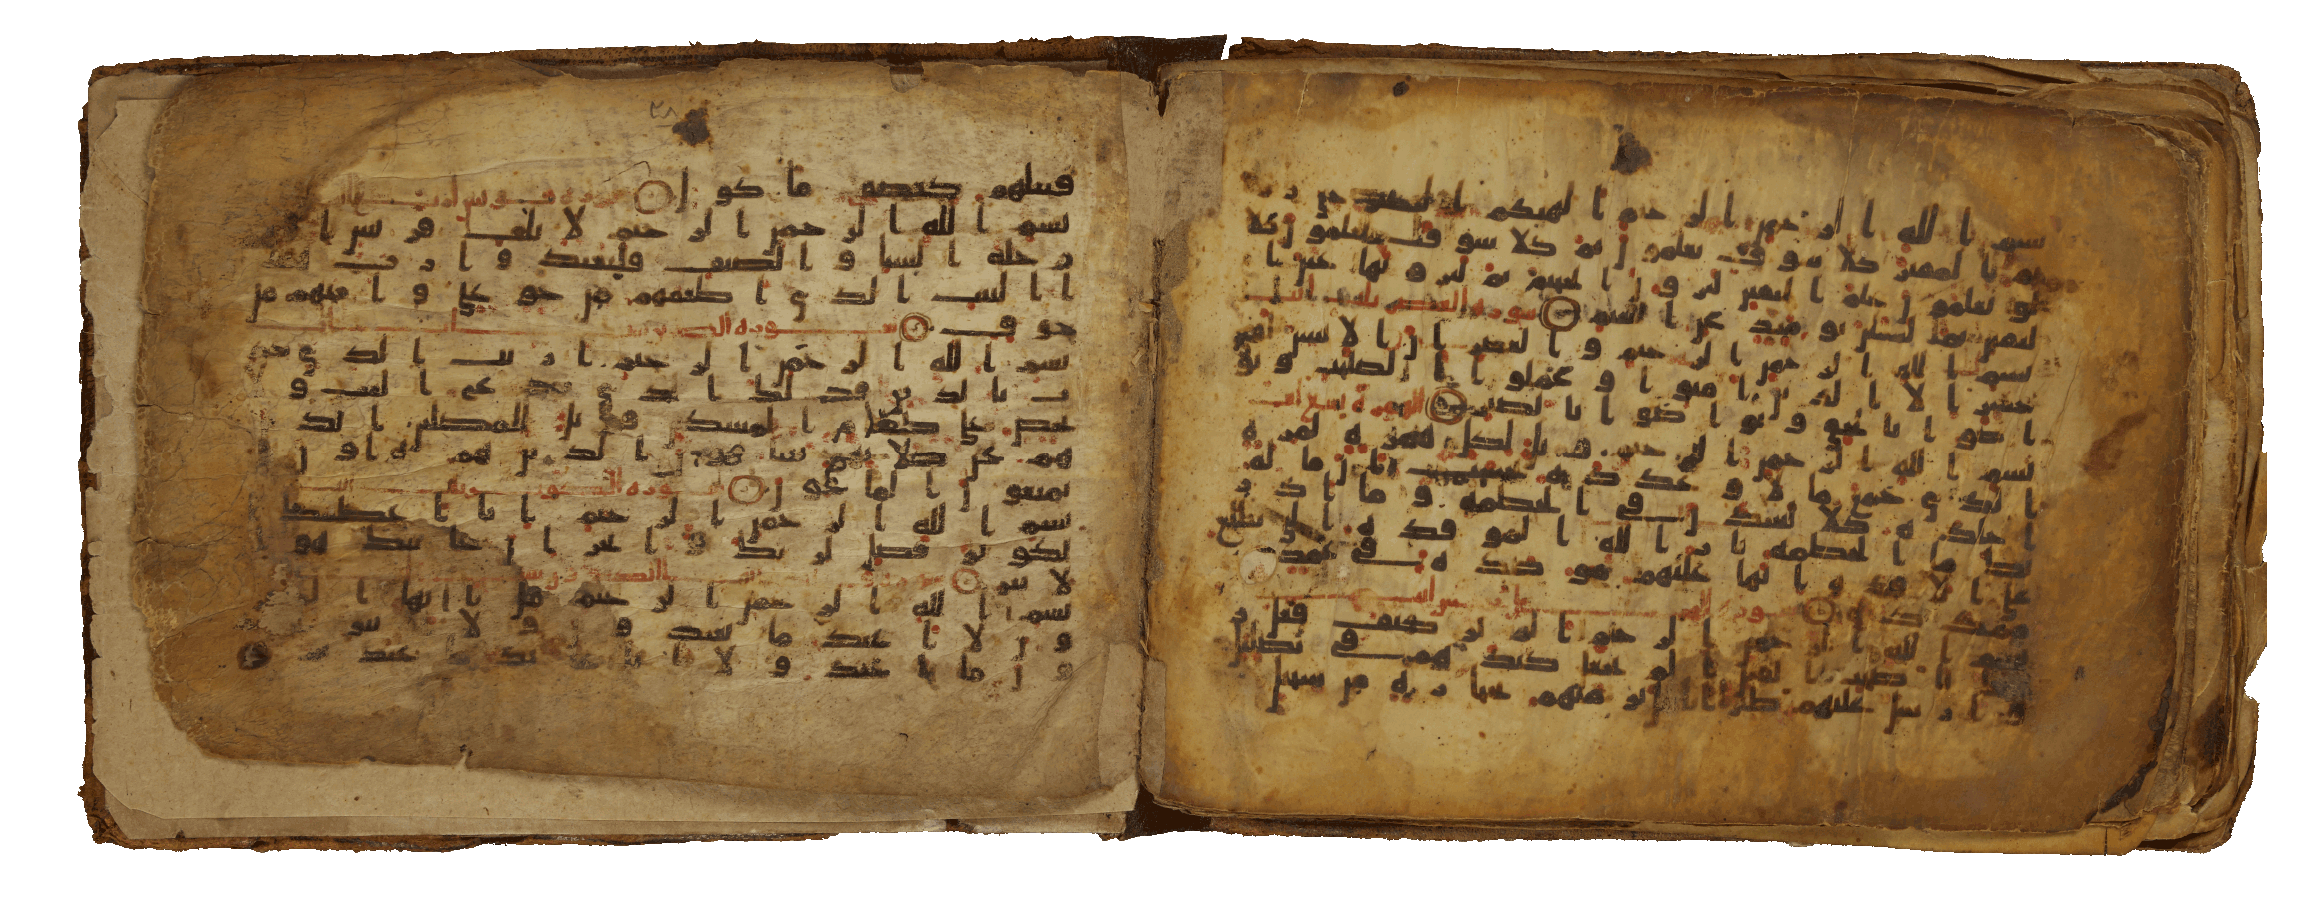 بسم الله الرحمن الرحيم الهيكم التكثر حتى زر
تم المقبر كلا سوف تعلمون ثم كلا سوف تعلمون كلا
لو تعلمون علم اليقين لترون الجحيم ثم لترونها عين ا
ليقين ثم لتسلن يومئذ عن النعيم سورة العصر ثلث ايت
بسم الله الرحمن الرحيم والعصر ان الانسن لفي
خسر الا الذين امنوا وعملوا الصلحت وتو
اصوا بالحق وتواصوا بالصبر الهمزة تسع ايت
بسم الله الرحمن الرحيم ويل لكل همزة لمزة
الذي جمع مالا وعدده يحسب ان ماله
اخلده كلا لينبذن في الحطمة وما ادر
يك ما الحطمة نار الله الموقدة التي تطلع
على الافدة انها عليهم موصدة في عمد
ممددة سورة الفيل خمس ايت
بسم الله الرحمن الرحيم الم تر كيف فعل ر
بك باصحب الفيل الم يجعل كيدهم في تضليل
وارسل عليهم طيرا ابابيل ترميهم بحجارة من سجيل
٢٨
فجعلهم كعصف ماكول سورة قريش ايت
بسم الله الرحمن الرحيم لايلف قريش ا
رحلة الشتا والصيف فليعبدوا رب هذا
ا البيت الذي اطعمهم من جوع وامنهم من
خوف سورة الدين
بسم الله الرحمن الرحيم اريت الذي يكذ
ب بالدين فذلك الذي يدع اليتيم و
لا يحض على طعام المسكين فويل للمصلين الذين
هم عن صلاتهم ساهون الذين هم يراون و
يمنعون الماعون سورة الكوثر
بسم الله الرحمن الرحيم انا اعطينا
ك الكوثر فصل لربك وانحر ان شانيك هو
الابتر سورة
بسم الله الرحمن الرحيم قل يايها ا
لا اعبد ما تعبدون ولا انتم
ون ما اعبد ولا انا عبد ما عبد